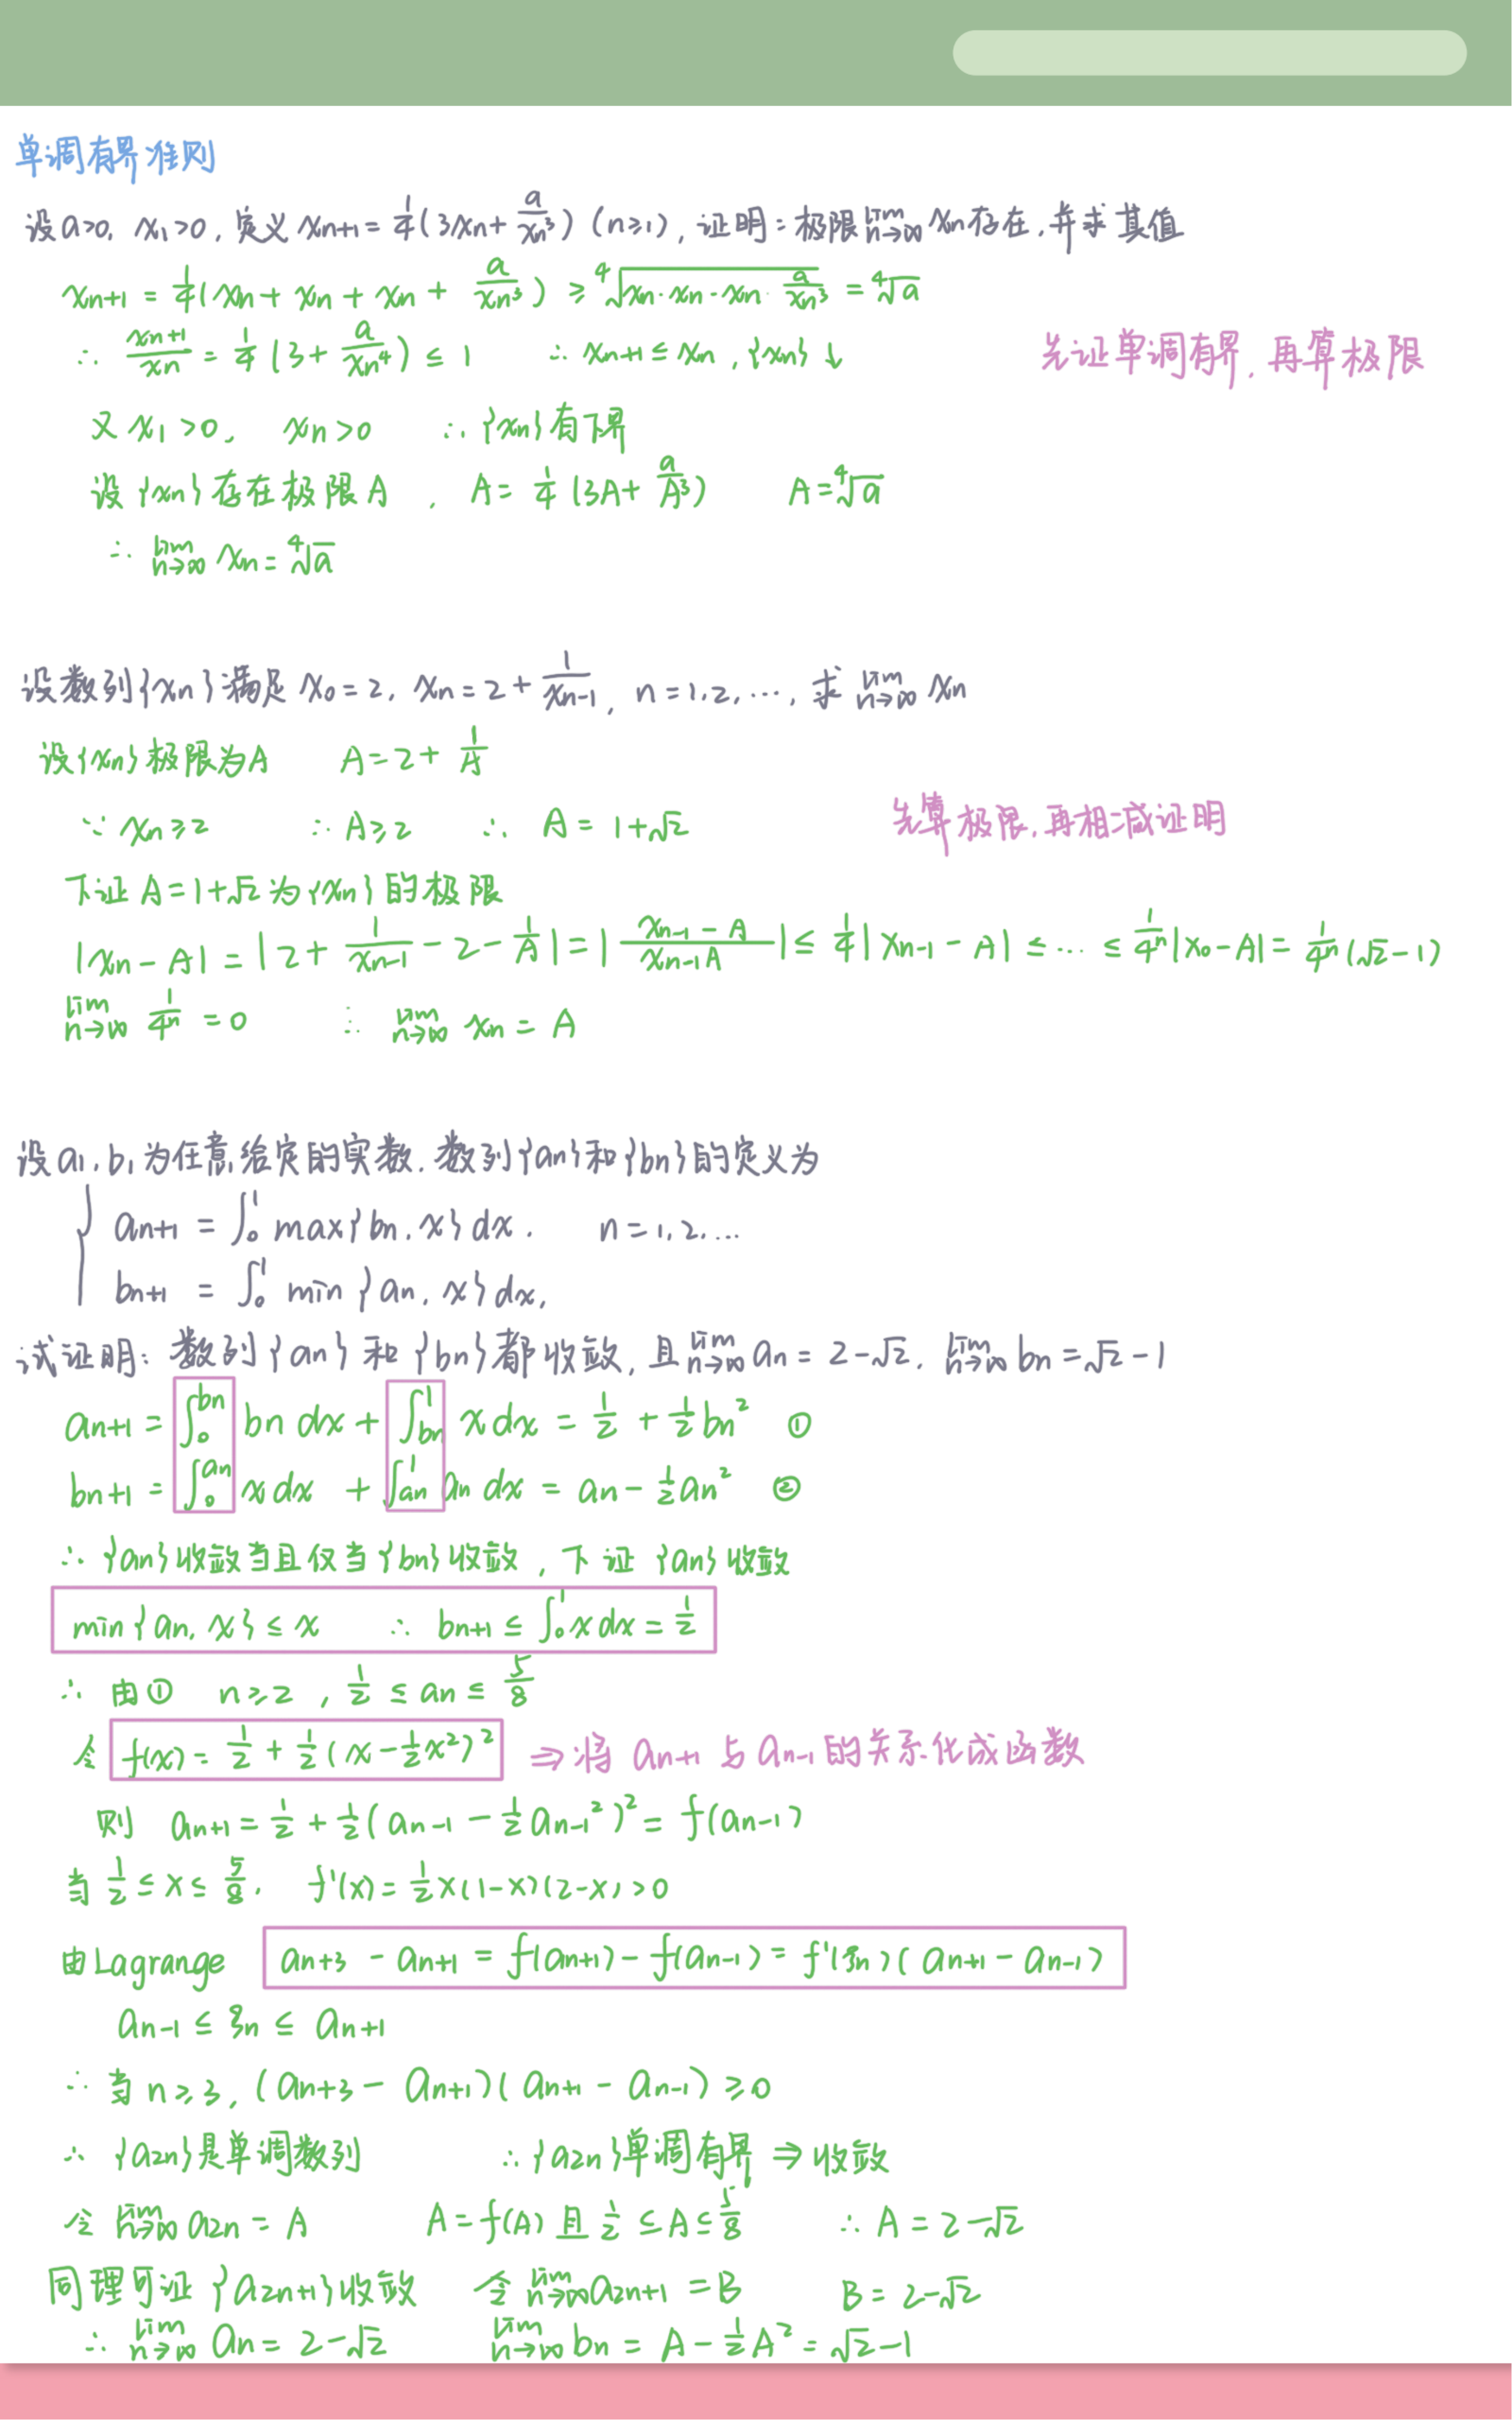 单调有界准则
设a>0, x₁>0, 定义xₙ₊₁ = 1/4(3xₙ + a/xₙ³) (n≥1), 证明: 极限lim n→∞ xₙ存在, 并求其值
xₙ₊₁ = 1/4(xₙ + xₙ + xₙ + a/xₙ³) ≥ ⁴√(xₙ·xₙ·xₙ·a/xₙ³) = ⁴√a
∴ xₙ₊₁/xₙ = 1/4(3 + a/xₙ⁴) ≤ 1 ∴ xₙ₊₁ ≤ xₙ, {xₙ}↓ 先证单调有界, 再算极限
又x₁>0, xₙ>0 ∴ {xₙ}有下界
设{xₙ}存在极限A, A = 1/4(3A + a/A³) A = ⁴√a
∴ lim n→∞ xₙ = ⁴√a
设数列{xₙ}满足x₀ = 2, xₙ = 2 + 1/xₙ₋₁, n = 1, 2, ..., 求lim n→∞ xₙ
设{xₙ}极限为A A = 2 + 1/A
∵ xₙ ≥ 2 ∴ A ≥ 2 ∴ A = 1+√2 先算极限, 再相减证明
下证A = 1+√2为{xₙ}的极限
|xₙ - A| = |2 + 1/xₙ₋₁ - 2 - 1/A| = |(xₙ₋₁ - A)/(xₙ₋₁A)| ≤ 1/4|xₙ₋₁ - A| ≤ ... ≤ 1/4ⁿ|x₀ - A| = 1/4ⁿ(√2 - 1)
lim n→∞ 1/4ⁿ = 0 ∴ lim n→∞ xₙ = A
设a₁, b₁为任意给定的实数, 数列{aₙ}和{bₙ}的定义为
{ aₙ₊₁ = ∫₀¹ max{bₙ, x}dx, n = 1, 2, ...
bₙ₊₁ = ∫₀¹ min{aₙ, x}dx,
试证明: 数列{aₙ}和{bₙ}都收敛, 且lim n→∞ aₙ = 2-√2, lim n→∞ bₙ = √2-1
aₙ₊₁ = ∫₀^bₙ bₙ dx + ∫_bₙ^1 x dx = 1/2 + 1/2 bₙ² ①
bₙ₊₁ = ∫₀^aₙ x dx + ∫_aₙ^1 aₙ dx = aₙ - 1/2 aₙ² ②
∴ {aₙ}收敛当且仅当{bₙ}收敛, 下证{aₙ}收敛
min{aₙ, x} ≤ x ∴ bₙ₊₁ ≤ ∫₀¹ x dx = 1/2
∴ 由① n≥2, 1/2 ≤ aₙ ≤ 5/8
令 f(x) = 1/2 + 1/2(x - 1/2 x²)² ⇒ 将aₙ₊₁与aₙ₋₁的关系化成函数
则 aₙ₊₁ = 1/2 + 1/2(aₙ₋₁ - 1/2 aₙ₋₁²)² = f(aₙ₋₁)
当 1/2 ≤ x ≤ 5/8, f'(x) = 1/2 x(1-x)(2-x) > 0
由Lagrange aₙ₊₃ - aₙ₊₁ = f(aₙ₊₁) - f(aₙ₋₁) = f'(ξₙ)(aₙ₊₁ - aₙ₋₁)
aₙ₋₁ ≤ ξₙ ≤ aₙ₊₁
∴ 当n≥3, (aₙ₊₃ - aₙ₊₁)(aₙ₊₁ - aₙ₋₁) ≥ 0
∴ {a₂ₙ}是单调数列 ∴ {a₂ₙ}单调有界 ⇒ 收敛
令 lim n→∞ a₂ₙ = A A = f(A) 且 1/2 ≤ A ≤ 5/8 ∴ A = 2-√2
同理可证{a₂ₙ₊₁}收敛 令 lim n→∞ a₂ₙ₊₁ = B B = 2-√2
∴ lim n→∞ aₙ = 2-√2 lim n→∞ bₙ = A - 1/2 A² = √2-1